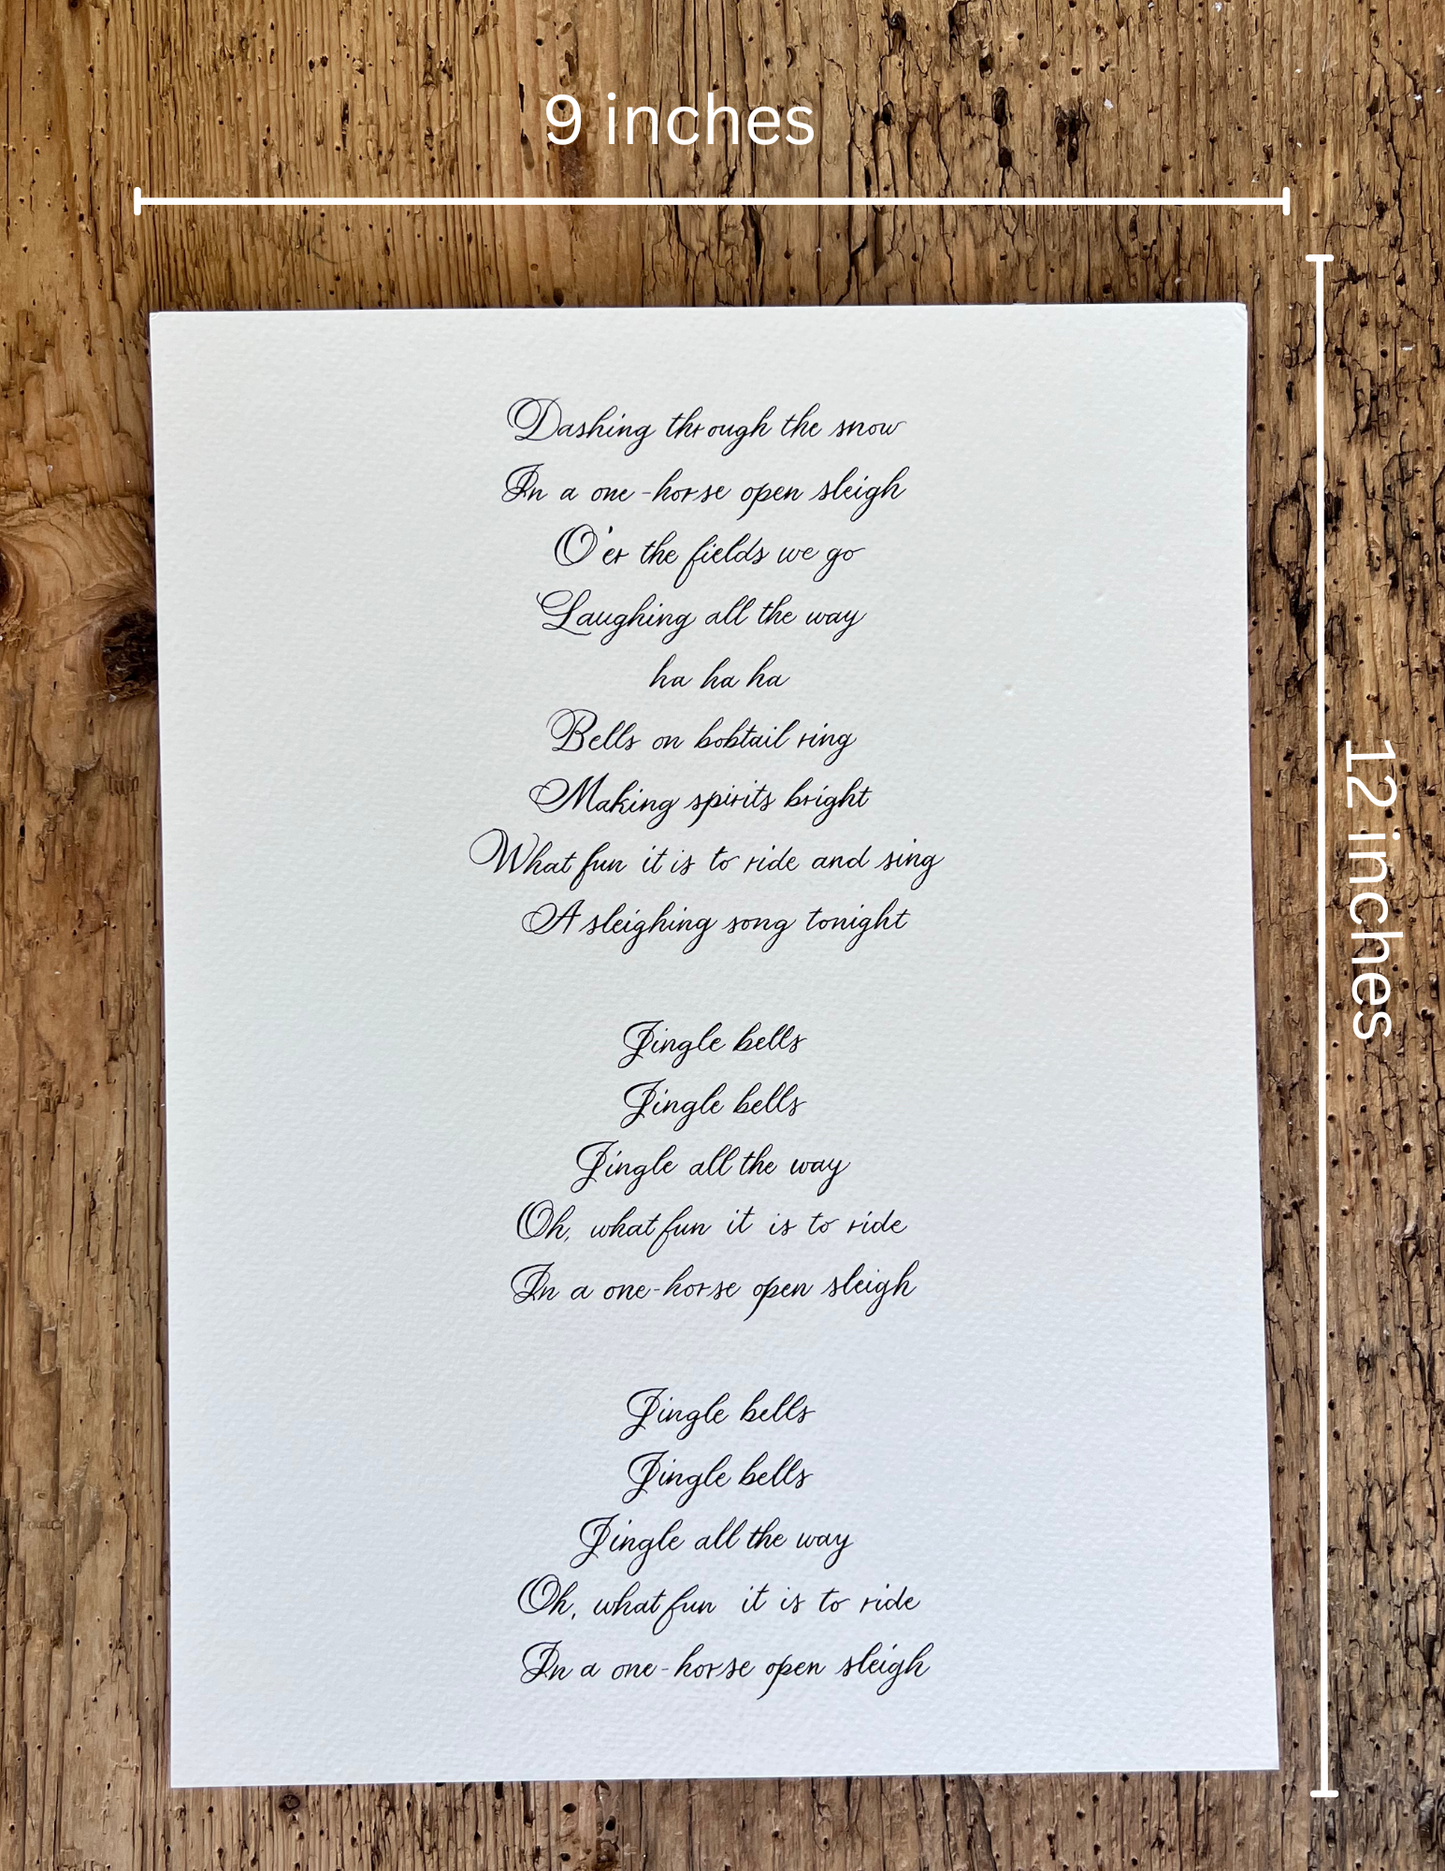 9 inches
12 inches
Dashing through the snow
In a one-horse open sleigh
O'er the fields we go
Laughing all the way
ha ha ha
Bells on bobtail ring
Making spirits bright
What fun it is to ride and sing
A sleighing song tonight
Jingle bells
Jingle bells
Jingle all the way
Oh, what fun it is to ride
In a one-horse open sleigh
Jingle bells
Jingle bells
Jingle all the way
Oh, what fun it is to ride
In a one-horse open sleigh